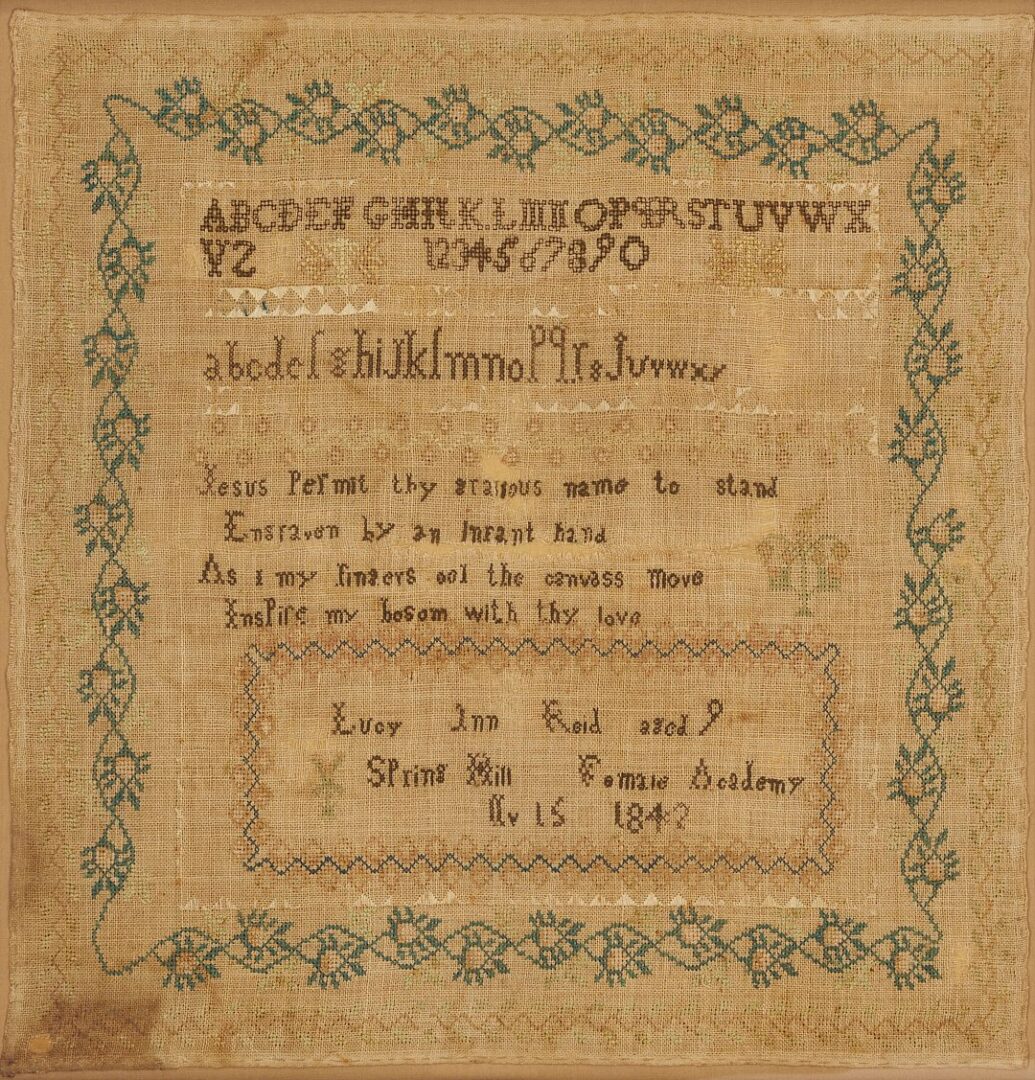 ABCDEFGHIKLMNOPQRSTUVWX
YZ 1234567890
abcdefghijklmnopqrstuvwxy
Jesus Permit thy gracious name to stand
Engraven by an Infant hand
As i my fingers oel the canvass move
Inspire my bosom with thy love
Lucy Ann Reid aged 9
Spring Hill Female Academy
Nv 15 1842